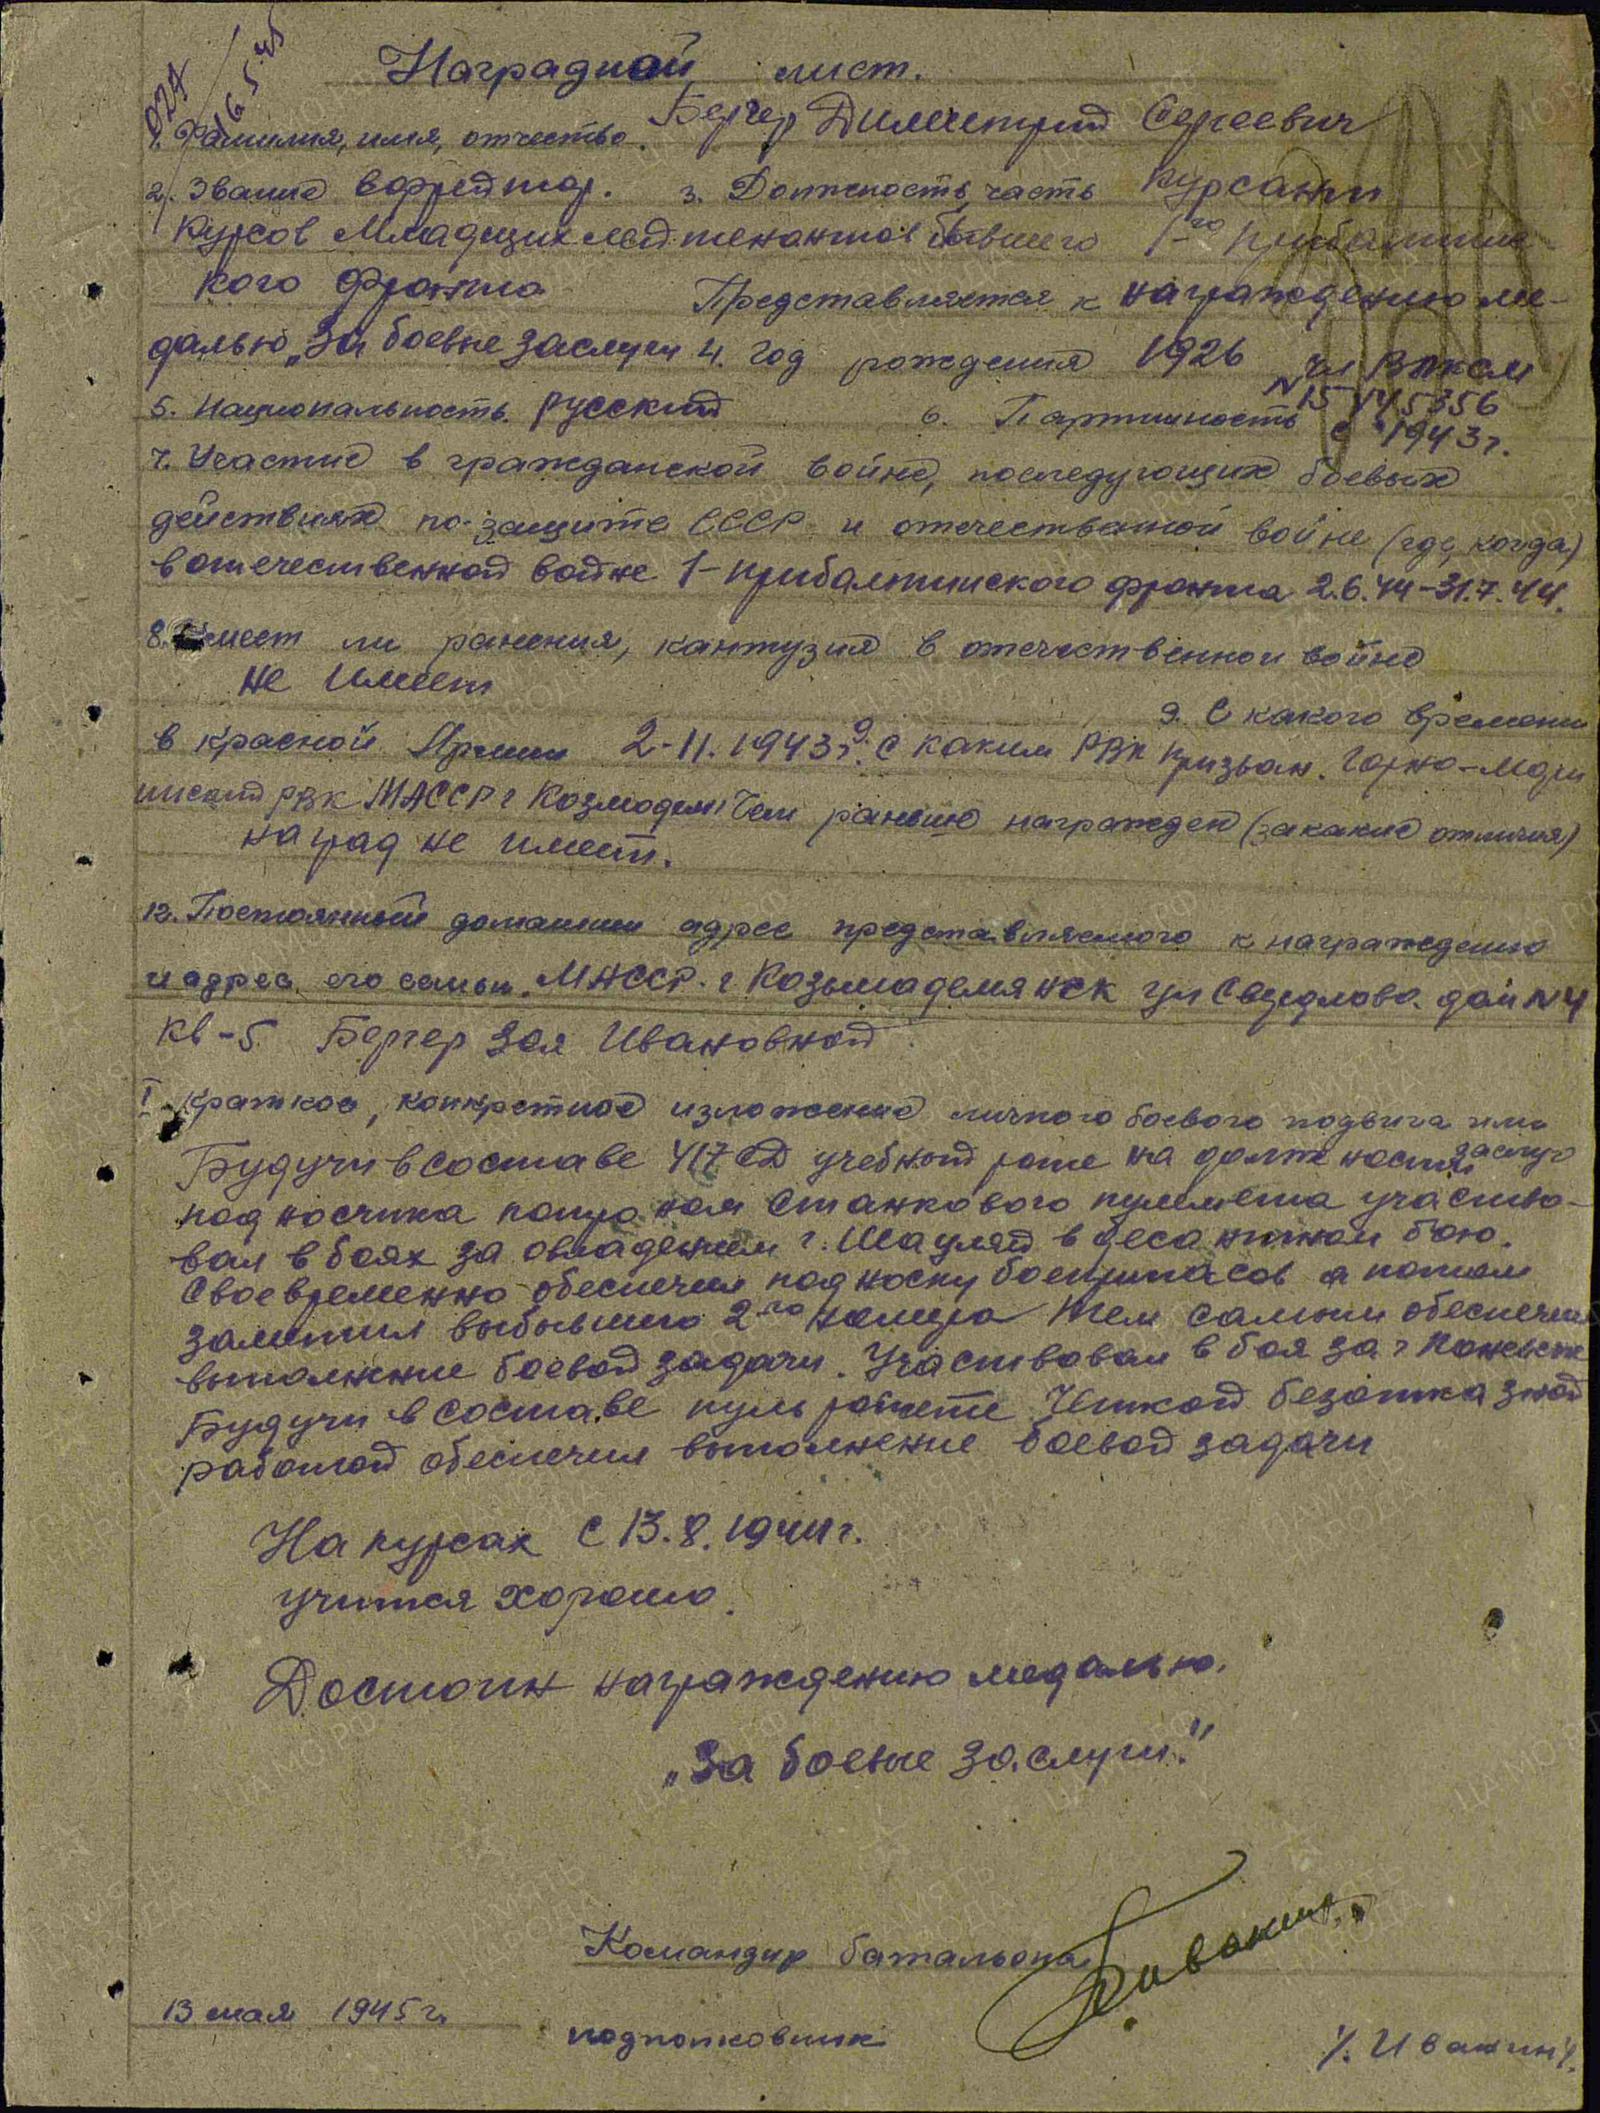 16 5 45
Наградной лист.
1. Фамилия, имя, отчество. Бергер Димитрий Сергеевич
2. Звание ефрейтор. 3. Должность, часть Курсант
Курсов Младших лейтенантов бывшего 1-го Прибалтийс-
кого фронта Представляется к награждению ме-
далью „За боевые заслуги 4. Год рождения 1926 чл ВЛКСМ
5. Национальность. русский 6. Партийность N 15145356 с 1943 г.
7. Участие в гражданской войне, последующих боевых
действиях по защите СССР и отечественной войне (где, когда)
в отечественной войне 1-прибалтийского фронта 2.6.44-31.7.44.
8. Имеет ли ранения, кантузия в отечественной войне
не имеет
9. С какого времени
в красной Армии 2-11.1943 г. 9. С каким РВК призван. Горно-Мари
ийский РВК МАССР г Козмодем Чем раньше награжден (за какие отличия)
наград не имеет.
12. Постоянный домашний адрес представляемого к награждению
и адрес его семьи. МАССР. г Козьмадемянск ул Свердлова. дом N 4
кв-5 Бергер Зоя Ивановной
I Краткое, конкретное изложение личного боевого подвига или
заслуг
Будучи в составе 417 СД учебной роте на должности
подносчика патронам станкового пулемета участво-
вал в боях за овладением г. Шауляй в десантном бою.
Своевременно обеспечил подноску боеприпасов а потом
заметил выбывшего 2-го номера тем самым обеспечил
выполнение боевой задачи. Участвовал в боя за г
Будучи в составе пульроте Четкой безотказной
работой обеспечил выполнение боевой задачи
На курсах с 13.8.1944 г.
учится хорошо.
Достоин награждению медалью.
„За боевые заслуги."
Командир батальона
13 мая 1945 г. подполковник /. Ивакин/.
ПАМЯТЬ НАРОДА
ЦАМО.РФ